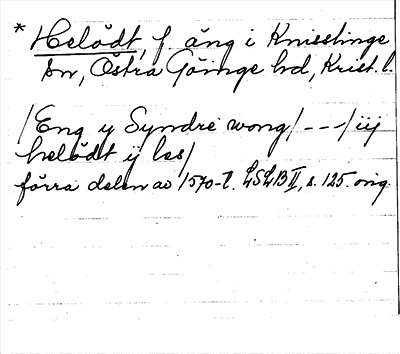 * Helådt, f. äng i Knisslinge
sn, Östra Göinge hd, Krist. l.
/Eng y Syndre wong/ - - -/iij
helådt ij les/
förra delen av 1570-t. LSLB II, s. 125. orig.